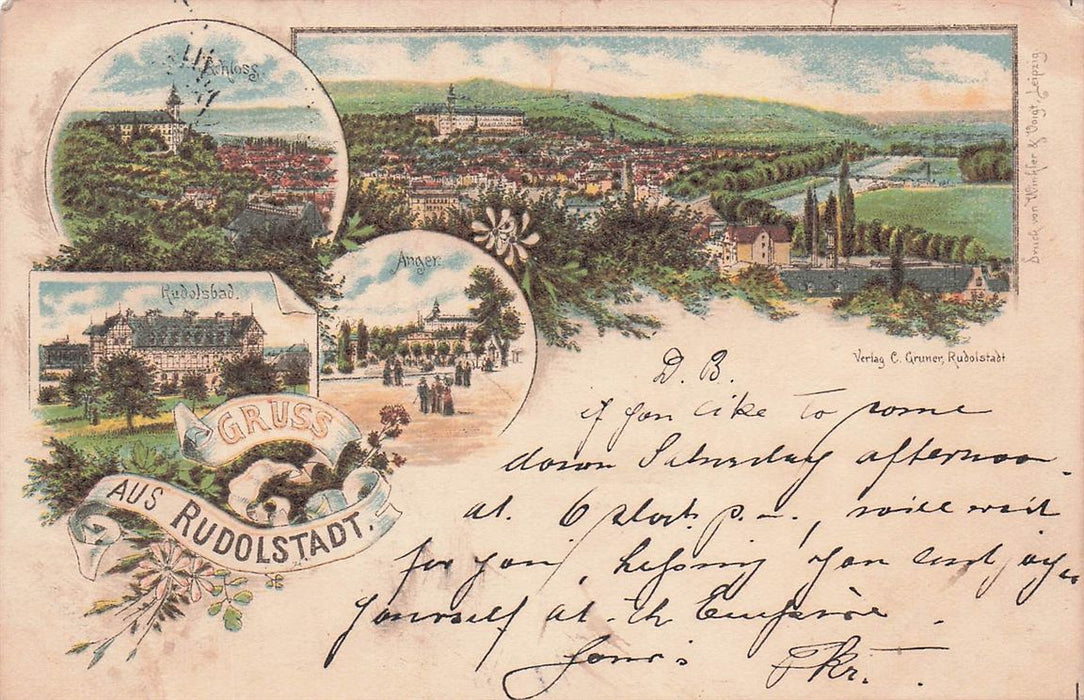 Schloss.
Anger.
Rudolsbad.
GRUSS
AUS RUDOLSTADT.
Druck von Winkler & Voigt, Leipzig
Verlag C. Gruner, Rudolstadt
D. B.
if you like to come
down Saturday afternoon
at 6 clock p.m., will wait
for you, hoping you
yourself at th
Yours